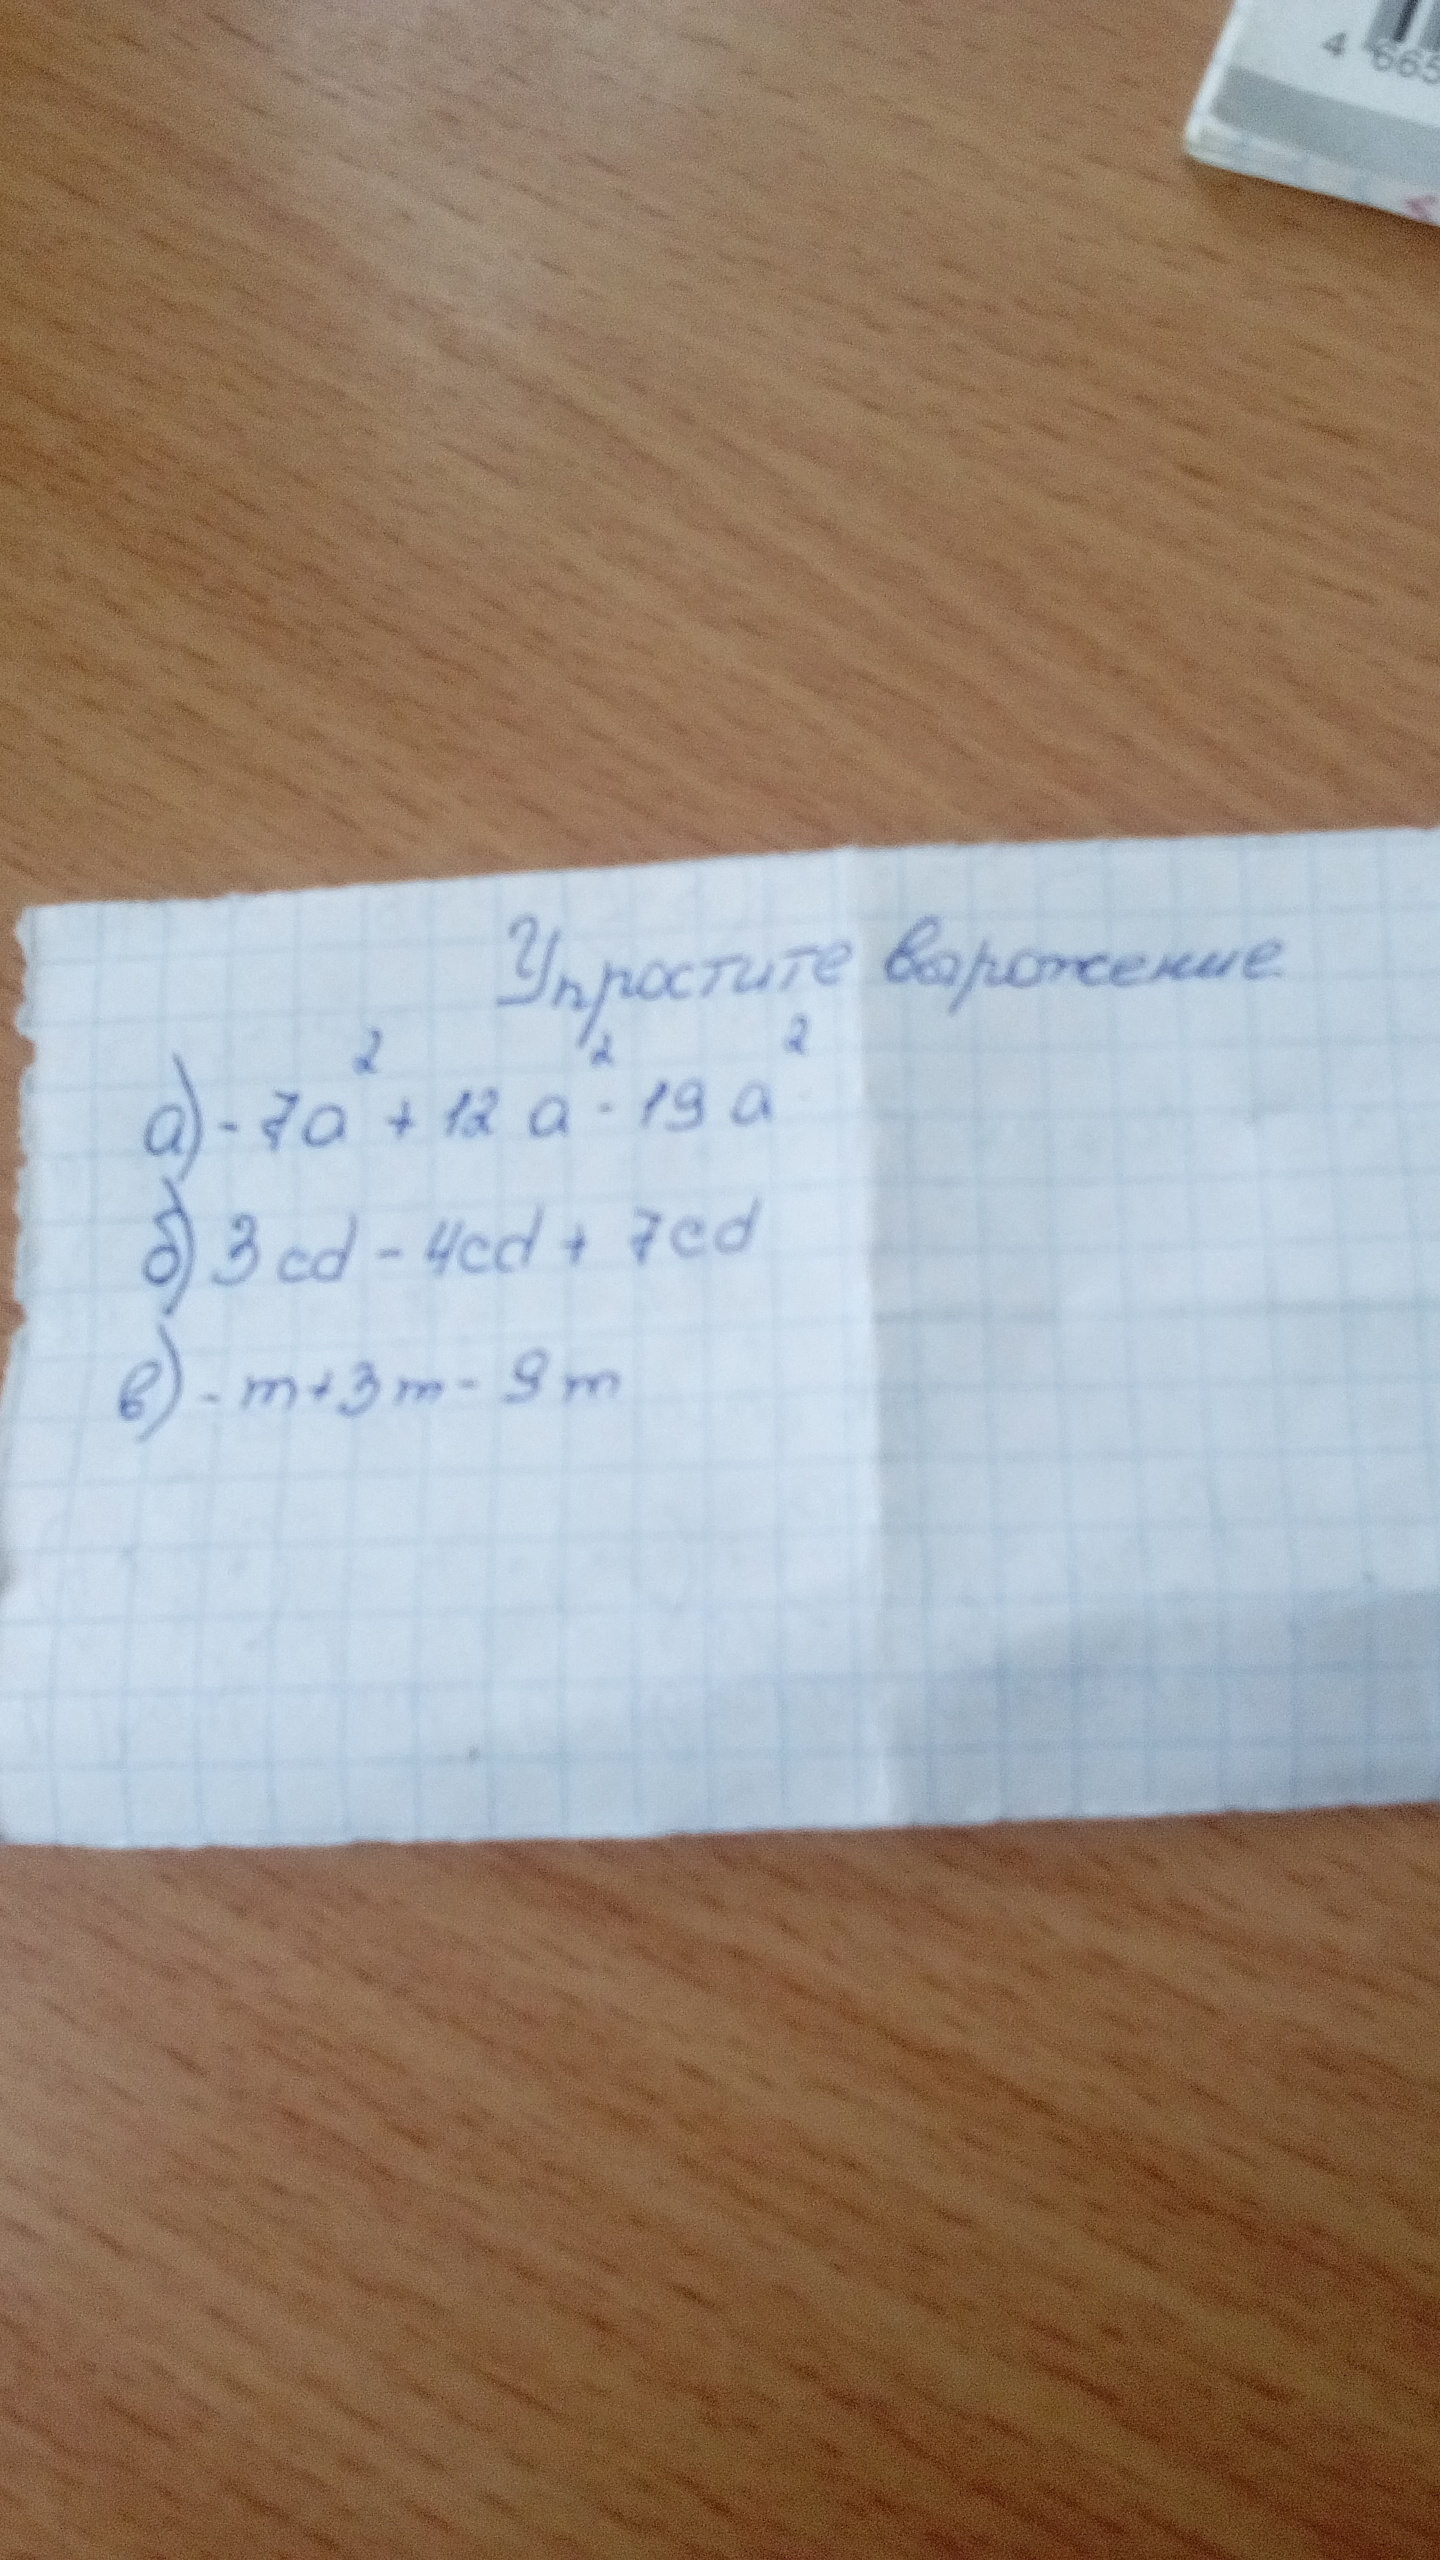 4 665
Упростите выражение
а) - 7a² + 12 a² - 19 a²
б) 3cd - 4cd + 7cd
в) - m + 3m - 9m